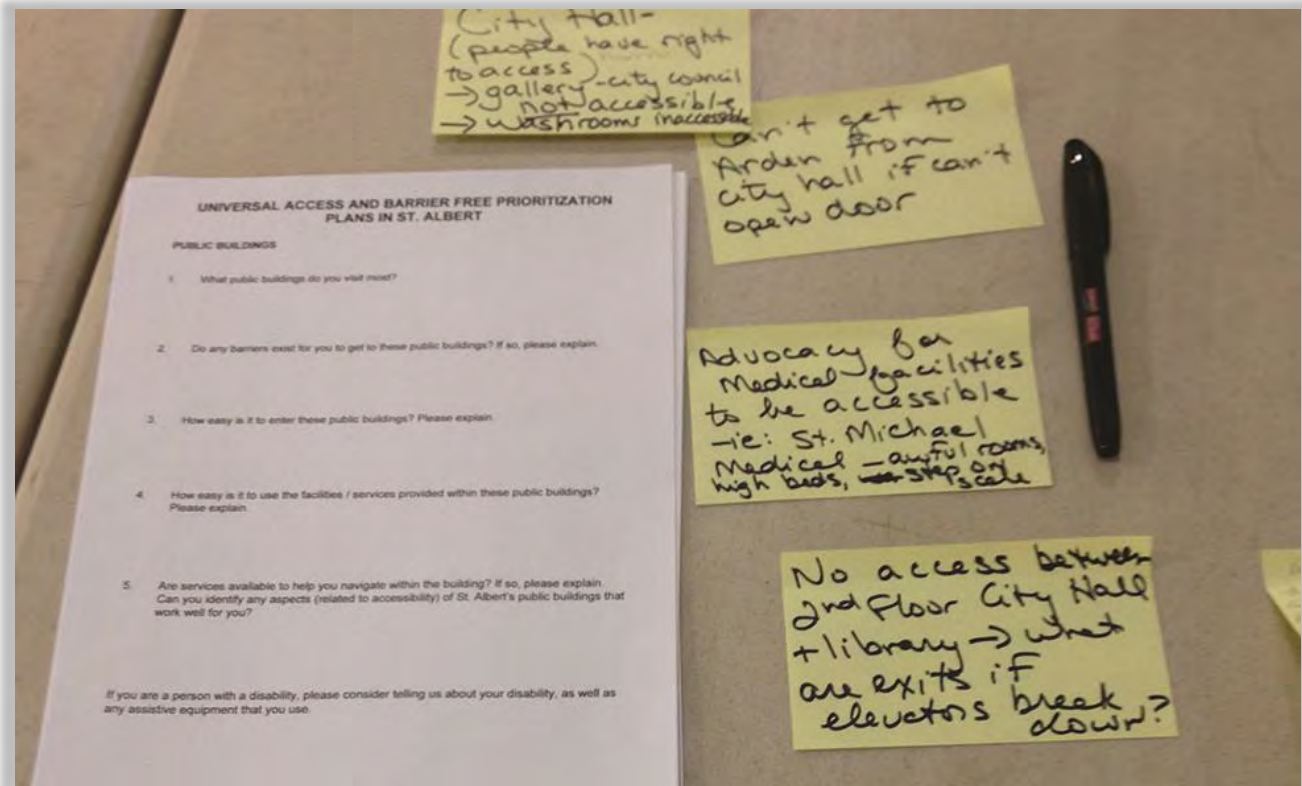 City Hall-
(people have right
to access)
→ gallery - city council
not accessible
→ washrooms inaccessible
Can't get to
Arden from
city hall if can't
open door
UNIVERSAL ACCESS AND BARRIER FREE PRIORITIZATION
PLANS IN ST. ALBERT
PUBLIC BUILDINGS
1. What public buildings do you visit most?
2. Do any barriers exist for you to get to these public buildings? If so, please explain.
3. How easy is it to enter these public buildings? Please explain.
4. How easy is it to use the facilities / services provided within these public buildings?
Please explain.
5. Are services available to help you navigate within the building? If so, please explain.
Can you identify any aspects (related to accessibility) of St. Albert's public buildings that
work well for you?
If you are a person with a disability, please consider telling us about your disability, as well as
any assistive equipment that you use.
Advocacy for
Medical facilities
to be accessible
-ie: St. Michael
Medical - awful rooms,
high beds, step on
scale
No access between
2nd Floor City Hall
+ library → what
are exits if
elevators break
down?